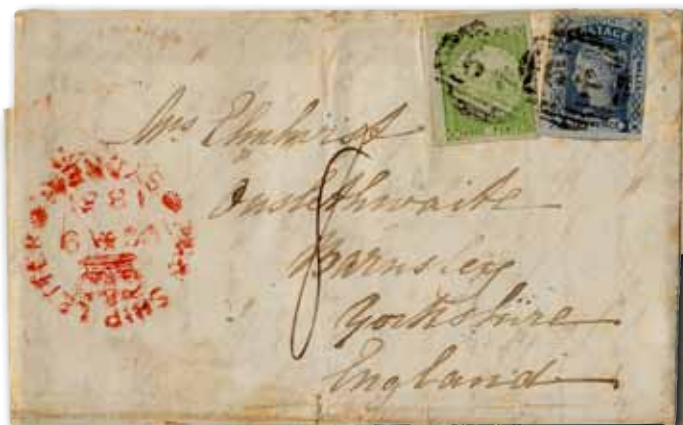 POSTAGE
Mrs Elmhirst
Ouslethwaite
Barnsley
Yorkshire
England
8
SHIP LETTER
SYDNEY